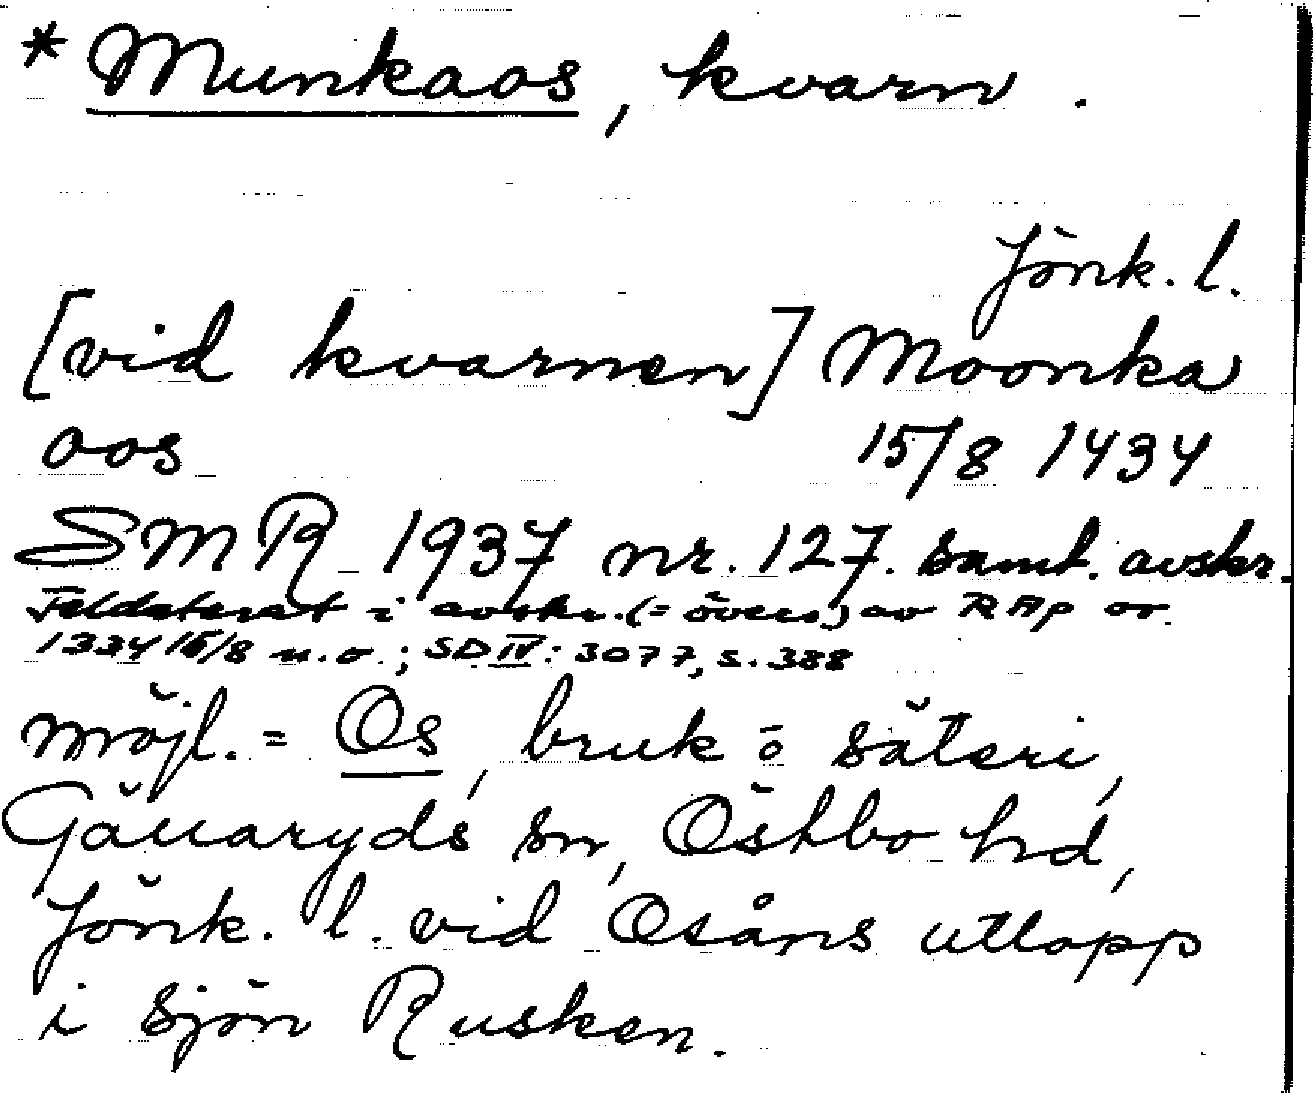 * Munkaos, kvarn.
Jönk. l.
[vid kvarnen] Moonka
oos 15/8 1434
SMR 1937 nr. 127. samt. avskr.
Feldaterat i avskr. (= övers) av RAp or
1334 15/8 u.o.; SD IV: 3077, s. 388
möjl. = Os, bruk o säteri,
Gällaryds sn, Östbo hd,
Jönk. l. vid Osåns utlopp
i sjön Rusken.